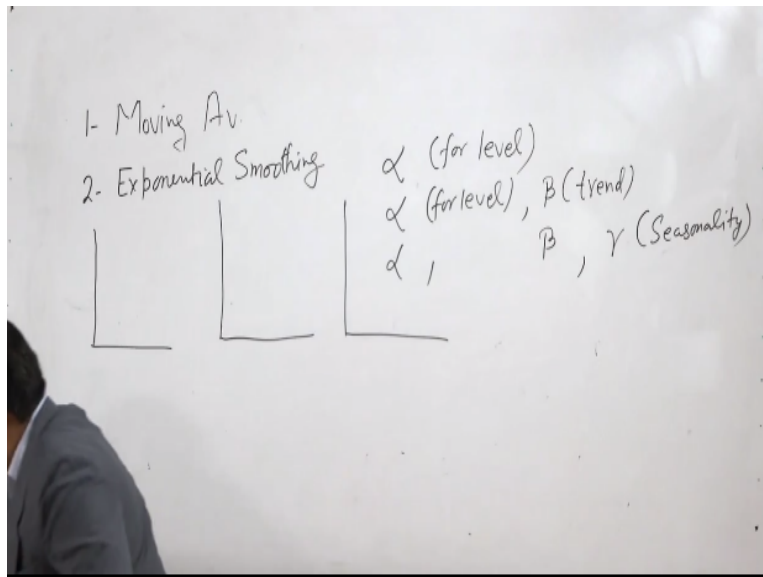 1- Moving Av.
2- Exponential Smoothing
α (for level)
α (for level), β (trend)
α, β, γ (Seasonality)